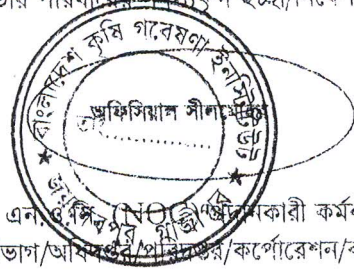 বাংলাদেশ কৃষি গবেষণা ইনস্টিটিউট
অফিসিয়াল সীলমোহর
জয়দেবপুর গাজীপুর
এন.ও.সি. (NOC) প্রদানকারী
ভাগ/অধিদপ্তর/পরিদপ্তর/কর্পোরেশন/